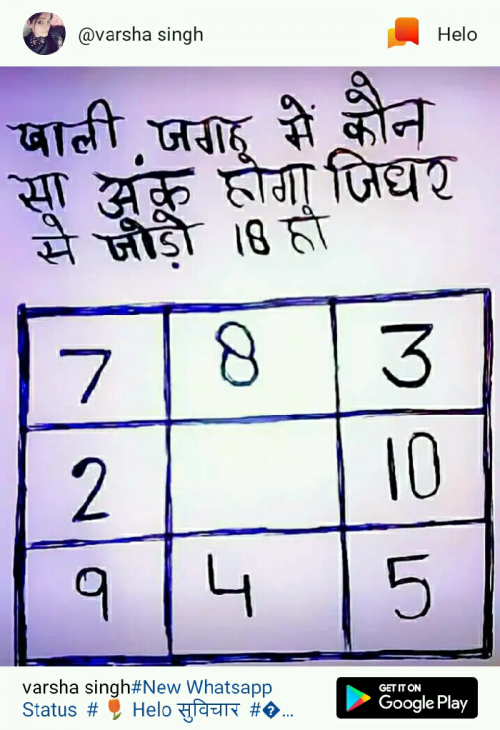 @varsha singh
Helo
खाली जगह में कौन
सा अंक होगा जिधर
से जोड़ो 18 हो
7 8 3
2 10
9 4 5
varsha singh#New Whatsapp
Status # 🌷 Helo सुविचार #�...
GET IT ON
Google Play